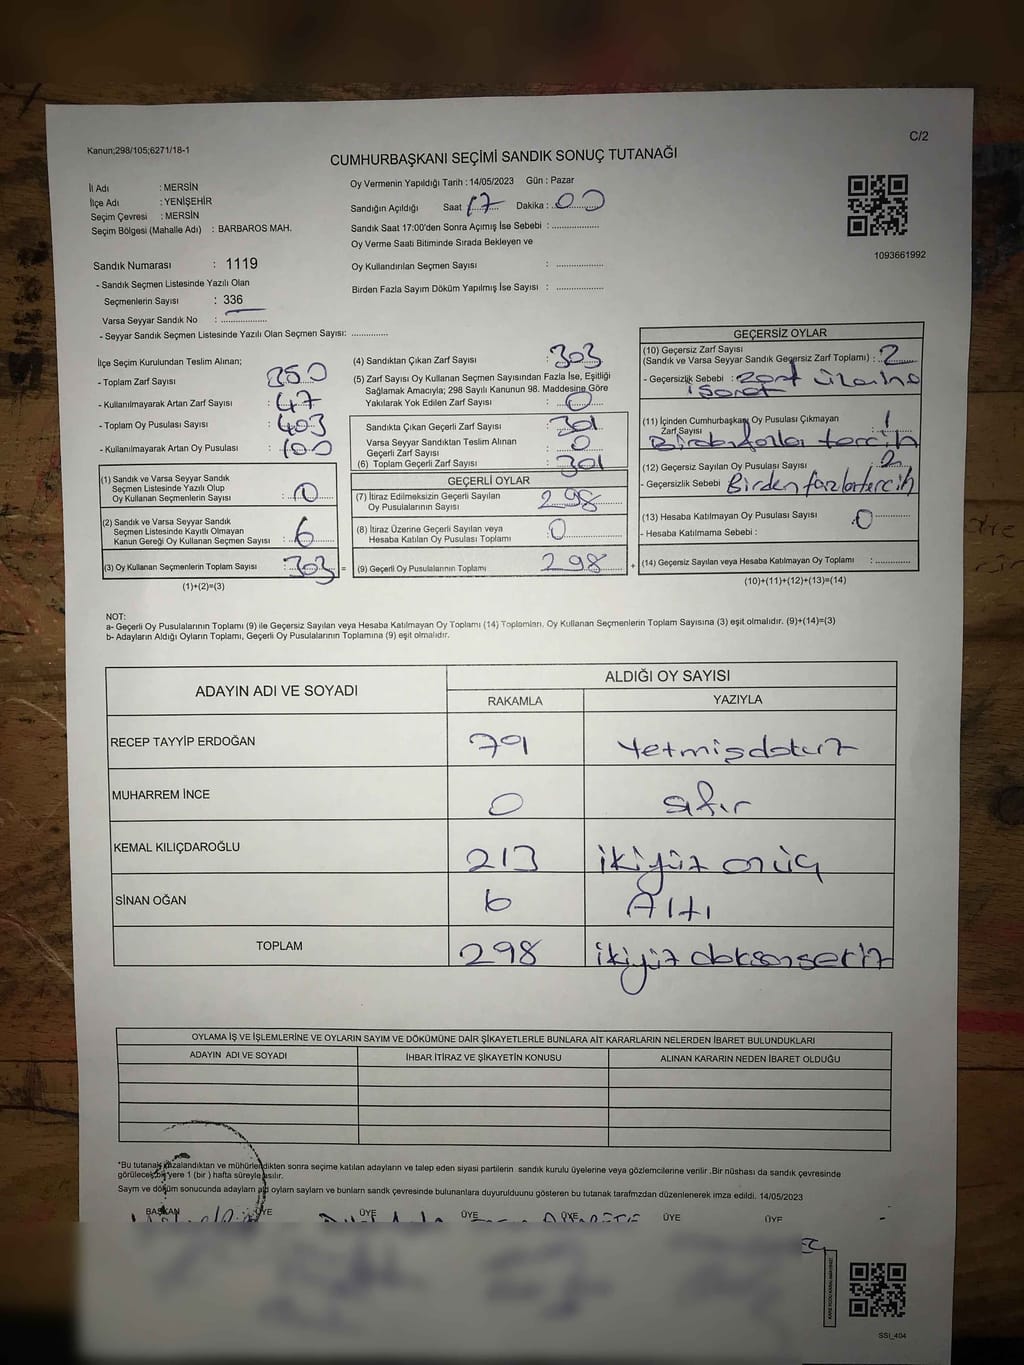 Kanun;298/105;6271/18-1
C/2
CUMHURBAŞKANI SEÇİMİ SANDIK SONUÇ TUTANAĞI
İl Adı : MERSİN
İlçe Adı : YENİŞEHİR
Seçim Çevresi : MERSİN
Seçim Bölgesi (Mahalle Adı) : BARBAROS MAH.
Oy Vermenin Yapıldığı Tarih : 14/05/2023 Gün : Pazar
Sandığın Açıldığı Saat 17 Dakika : 00
Sandık Saat 17:00'den Sonra Açımış İse Sebebi : ..............
Oy Verme Saati Bitiminde Sırada Bekleyen ve
Oy Kullandırılan Seçmen Sayısı : ..............
Birden Fazla Sayım Döküm Yapılmış İse Sayısı : ..............
1093661992
Sandık Numarası : 1119
- Sandık Seçmen Listesinde Yazılı Olan
Seçmenlerin Sayısı : 336
Varsa Seyyar Sandık No : ..............
- Seyyar Sandık Seçmen Listesinde Yazılı Olan Seçmen Sayısı: ...........
İlçe Seçim Kurulundan Teslim Alınan;
- Toplam Zarf Sayısı : 350
- Kullanılmayarak Artan Zarf Sayısı : 47
- Toplam Oy Pusulası Sayısı : 403
- Kullanılmayarak Artan Oy Pusulası : 100
(1) Sandık ve Varsa Seyyar Sandık
Seçmen Listesinde Yazılı Olup
Oy Kullanan Seçmenlerin Sayısı :
(2) Sandık ve Varsa Seyyar Sandık
Seçmen Listesinde Kayıtlı Olmayan
Kanun Gereği Oy Kullanan Seçmen Sayısı : 6
(3) Oy Kullanan Seçmenlerin Toplam Sayısı : 303 =
(1)+(2)=(3)
(4) Sandıktan Çıkan Zarf Sayısı : 303
(5) Zarf Sayısı Oy Kullanan Seçmen Sayısından Fazla İse, Eşitliği
Sağlamak Amacıyla; 298 Sayılı Kanunun 98. Maddesine Göre
Yakılarak Yok Edilen Zarf Sayısı : 0
Sandıkta Çıkan Geçerli Zarf Sayısı : 301
Varsa Seyyar Sandıktan Teslim Alınan
Geçerli Zarf Sayısı : 0
(6) Toplam Geçerli Zarf Sayısı : 301
GEÇERLİ OYLAR
(7) İtiraz Edilmeksizin Geçerli Sayılan
Oy Pusulalarının Sayısı : 298
(8) İtiraz Üzerine Geçerli Sayılan veya
Hesaba Katılan Oy Pusulası Toplamı : 0
(9) Geçerli Oy Pusulalarının Toplamı : 298 +
GEÇERSİZ OYLAR
(10) Geçersiz Zarf Sayısı
(Sandık ve Varsa Seyyar Sandık Geçersiz Zarf Toplamı) : 2
- Geçersizlik Sebebi : zarf üzerine
işaret
(11) İçinden Cumhurbaşkanı Oy Pusulası Çıkmayan
Zarf Sayısı : 1
Birden fazla tercih
(12) Geçersiz Sayılan Oy Pusulası Sayısı : 2
- Geçersizlik Sebebi Birden fazla tercih
(13) Hesaba Katılmayan Oy Pusulası Sayısı : 0
- Hesaba Katılmama Sebebi :
(14) Geçersiz Sayılan veya Hesaba Katılmayan Oy Toplamı : ...........
(10)+(11)+(12)+(13)=(14)
NOT:
a- Geçerli Oy Pusulalarının Toplamı (9) ile Geçersiz Sayılan veya Hesaba Katılmayan Oy Toplamı (14) Toplamları, Oy Kullanan Seçmenlerin Toplam Sayısına (3) eşit olmalıdır. (9)+(14)=(3)
b- Adayların Aldığı Oyların Toplamı, Geçerli Oy Pusulalarının Toplamına (9) eşit olmalıdır.
ADAYIN ADI VE SOYADI ALDIĞI OY SAYISI
RAKAMLA YAZIYLA
RECEP TAYYİP ERDOĞAN 79 Yetmişdokuz
MUHARREM İNCE 0 sıfır
KEMAL KILIÇDAROĞLU 213 ikiyüz onüç
SİNAN OĞAN 6 Altı
TOPLAM 298 ikiyüz doksansekiz
OYLAMA İŞ VE İŞLEMLERİNE VE OYLARIN SAYIM VE DÖKÜMÜNE DAİR ŞİKAYETLERLE BUNLARA AİT KARARLARIN NELERDEN İBARET BULUNDUKLARI
ADAYIN ADI VE SOYADI İHBAR İTİRAZ VE ŞİKAYETİN KONUSU ALINAN KARARIN NEDEN İBARET OLDUĞU
*Bu tutanak imzalandıktan ve mühürlendikten sonra seçime katılan adayların ve talep eden siyasi partilerin sandık kurulu üyelerine veya gözlemcilerine verilir .Bir nüshası da sandık çevresinde
görülecek bir yere 1 (bir ) hafta süreyle asılır.
Sayım ve döküm sonucunda adayların ad oyların sayların ve bunların sandk çevresinde bulunanlara duyurulduunu gösteren bu tutanak tarafmzdan düzenlenerek imza edildi. 14/05/2023
BAŞKAN ÜYE ÜYE ÜYE ÜYE ÜYE ÜYE
SSI_404